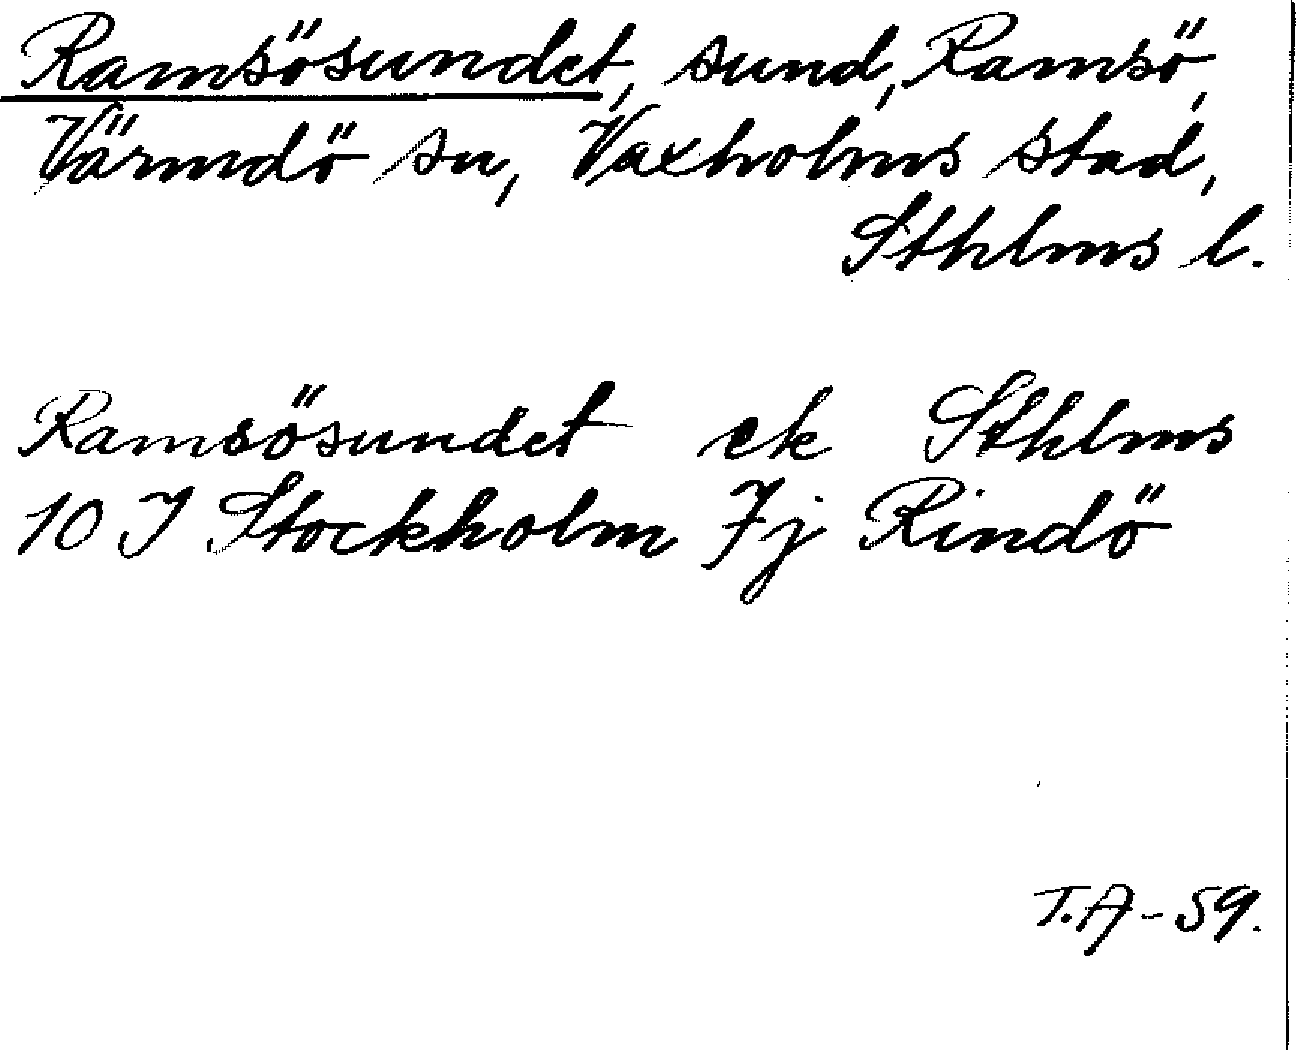 Ramsösundet, sund, Ramsö,
Värmdö sn, Vaxholms stad,
Sthlms l.
Ramsösundet ek Sthlms
10 I Stockholm 7j Rindö
T.A-59.